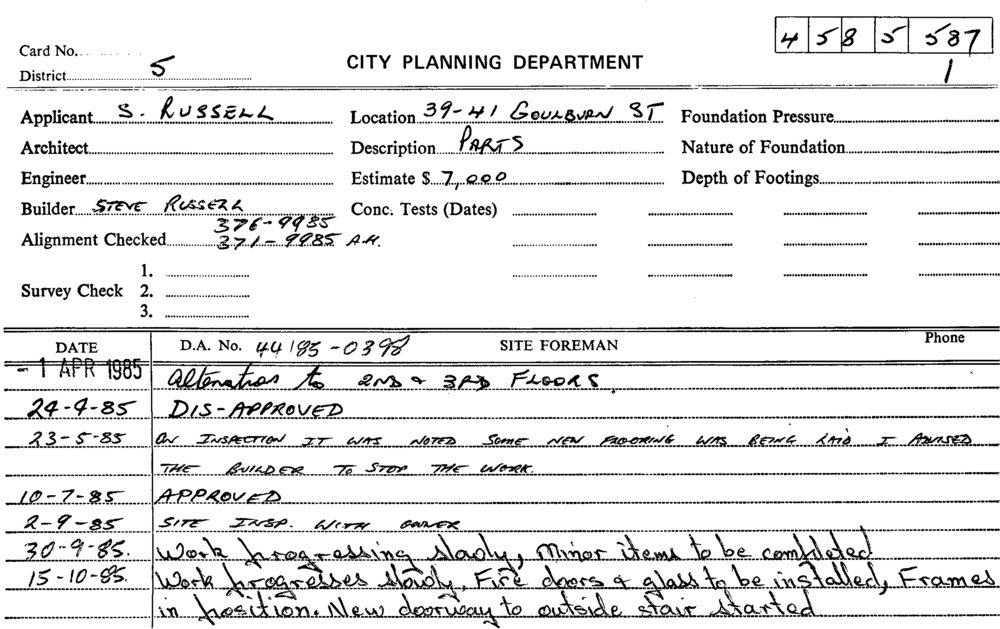 4 58 5 587
Card No.
1
District 5
CITY PLANNING DEPARTMENT
Applicant S. RUSSELL Location 39-41 GOULBURN ST Foundation Pressure
Architect Description PARTS Nature of Foundation
Engineer Estimate $ 7,000 Depth of Footings
Builder STEVE RUSSELL Conc. Tests (Dates)
376-9985
Alignment Checked 371-9985 A.H.
1.
Survey Check 2.
3.
DATE D.A. No. 44 85-0398 SITE FOREMAN Phone
-1 APR 1985 Alterations to 2ND & 3RD FLOORS.
24-4-85 DIS-APPROVED
23-5-85 ON INSPECTION IT WAS NOTED SOME NEW FLOORING WAS BEING LAID I ADVISED
THE BUILDER TO STOP THE WORK.
10-7-85 APPROVED
2-9-85 SITE INSP. WITH OWNER
30-9-85. Work progressing slowly, Minor items to be completed
15-10-85. Work progresses slowly. Fire doors & glass to be installed, Frames
in position. New doorway to outside stair started